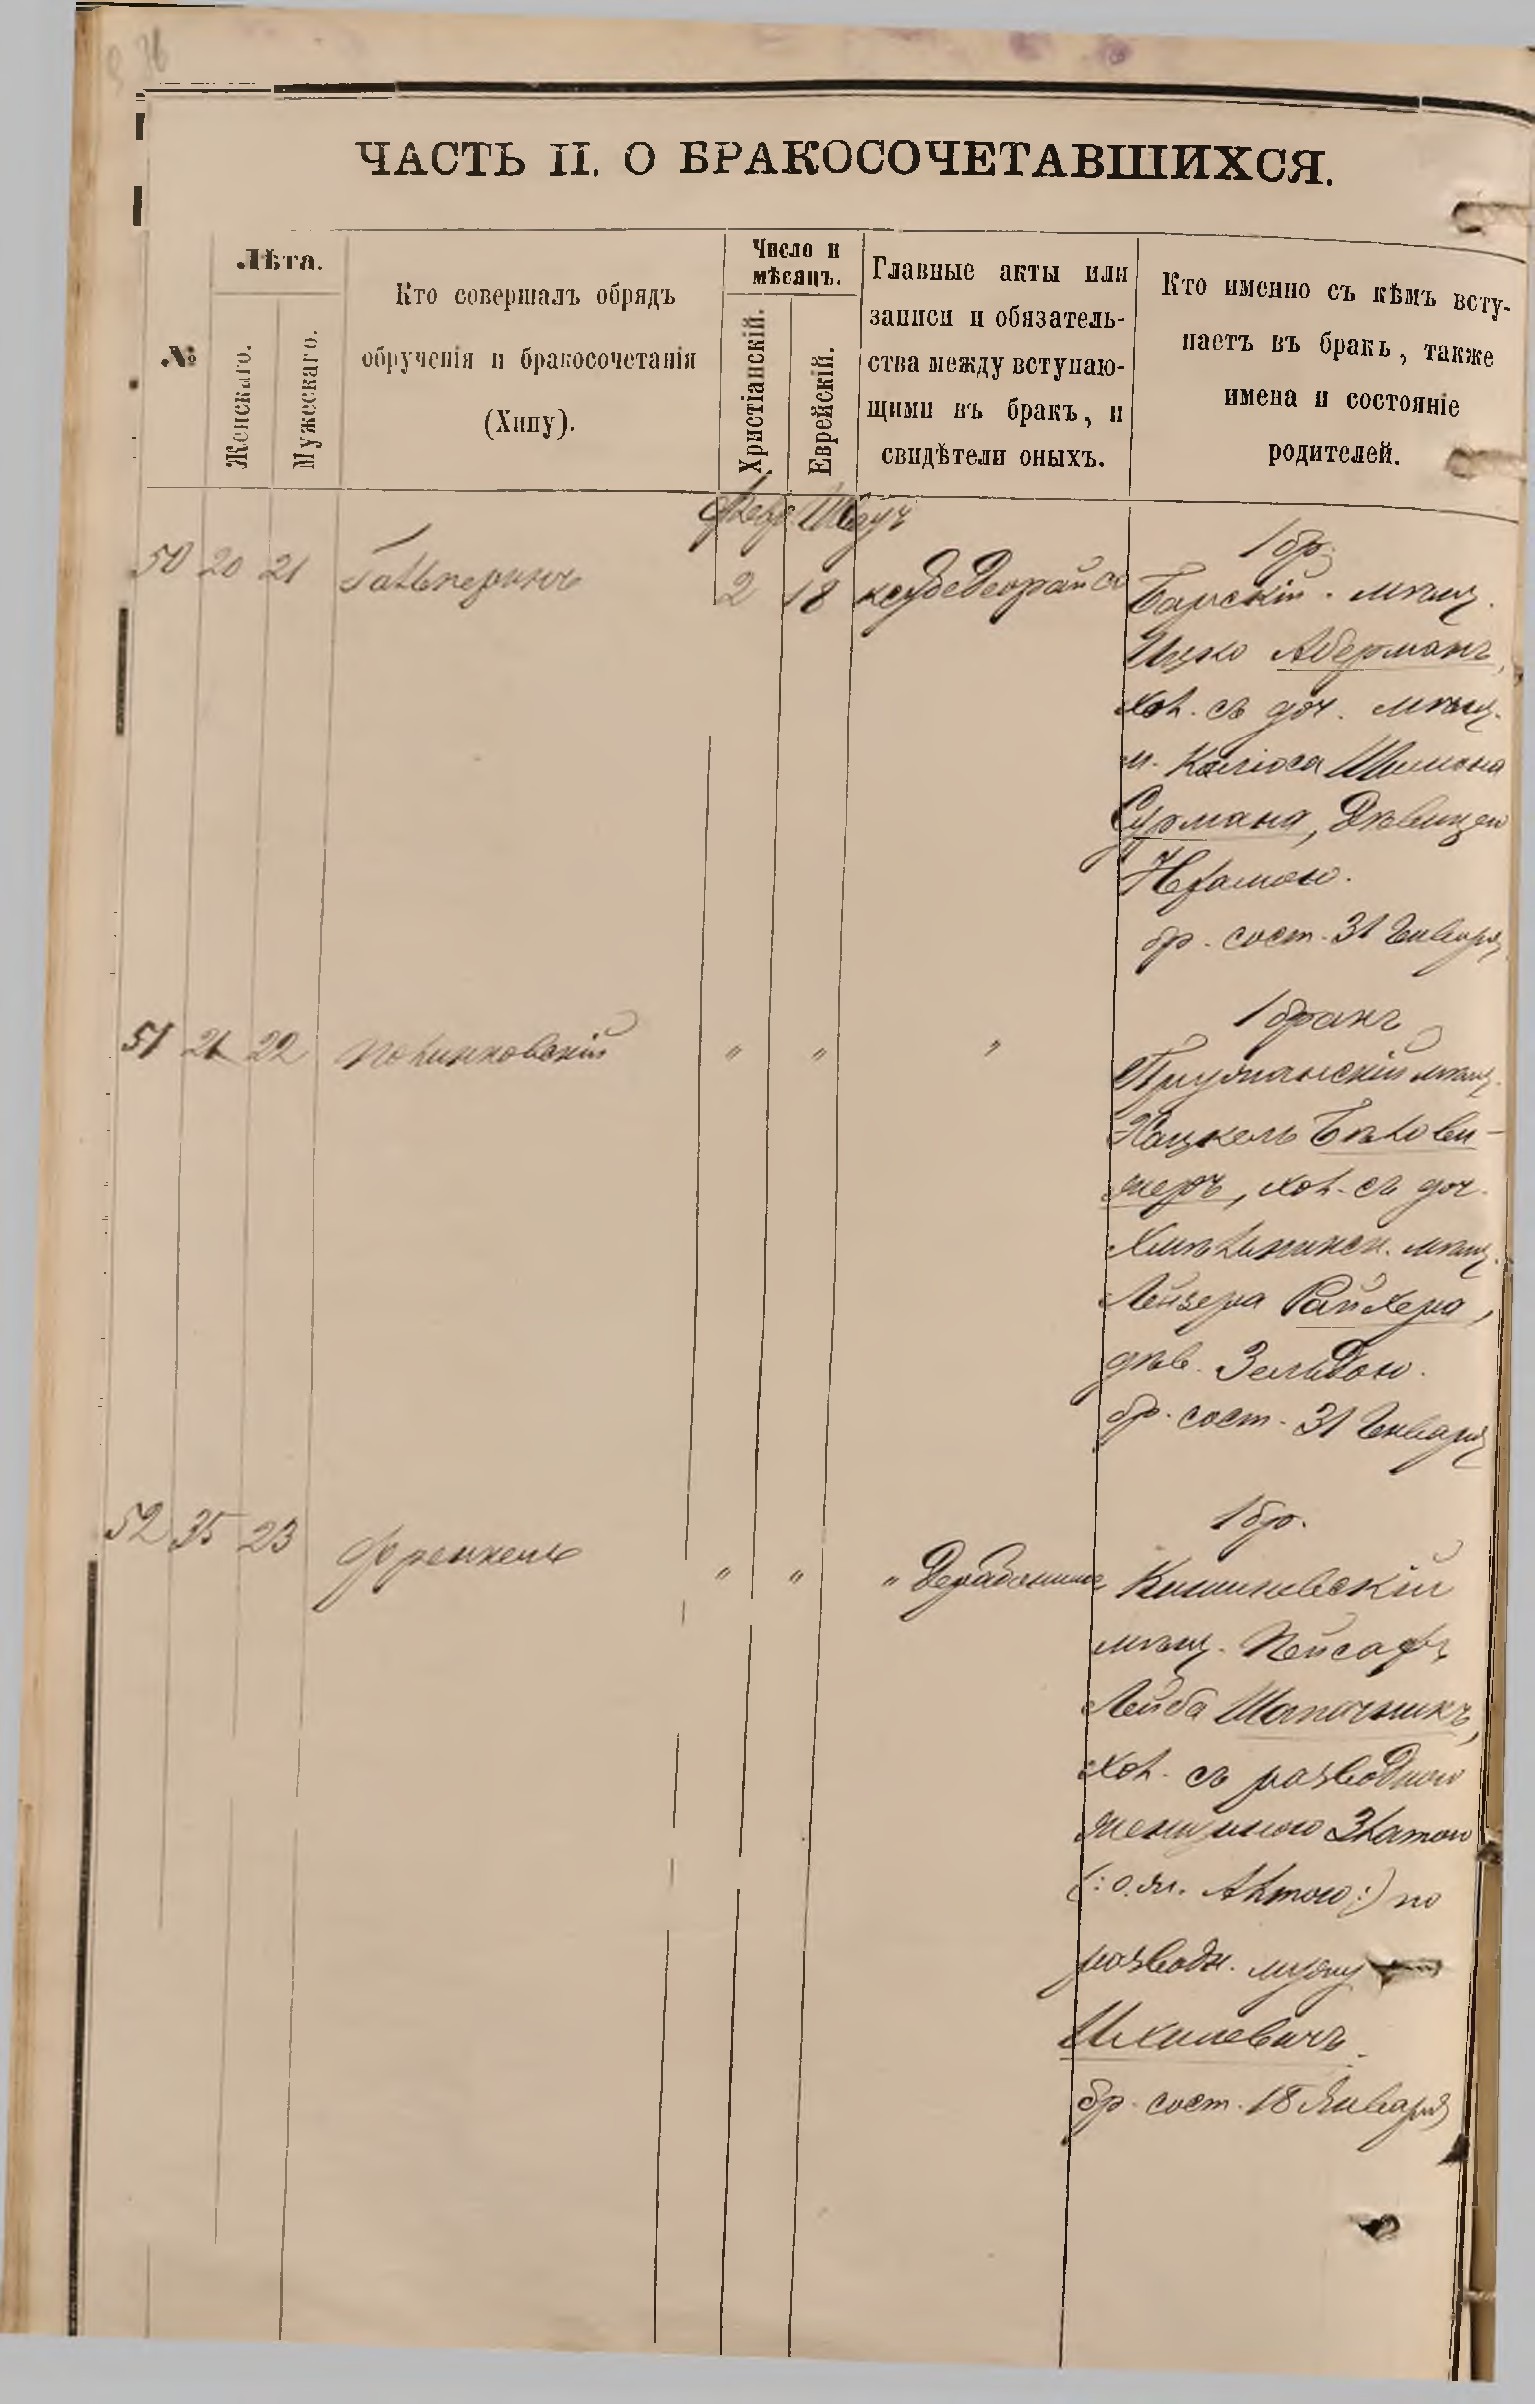 36
ЧАСТЬ II. О БРАКОСОЧЕТАВШИХСЯ.
№
Лѣта.
Женскаго.
Мужескаго.
Кто совершалъ обрядъ
обрученія и бракосочетанія
(Хипу).
Число и
мѣсяцъ.
Христіанскій.
Еврейскій.
Главные акты или
записи и обязатель-
ства между вступаю-
щими въ бракъ, и
свидѣтели оныхъ.
Кто именно съ кѣмъ всту-
паетъ въ бракъ, также
имена и состояніе
родителей.
Февр Швут
50 20 21 Гальперинъ 2 18
1 бр.
Барскій мѣщ.
Ицко Аберманъ,
хол. съ доч. мѣщ.
м. Калюса Шимона
Сурмана, дѣвицею
бр. сост. 31 Января
51 21 22 Полинковскій " " "
1 бракъ
мѣщ.
Хацкель Бѣлови-
хол. съ доч.
Хмѣльникск. мѣщ.
Лейзера Райхера,
дѣв. Зельдою.
бр. сост. 31 Января
52 35 23 Френкель " " " Дерабонинъ
1 бр.
Кишиневскій
мѣщ. Пейсахъ
Лейба Шапочникъ,
хол. съ разводною
женщиною Златою
(: о.. Алтою :) по
разводн. мужу
бр. сост. 18 Января